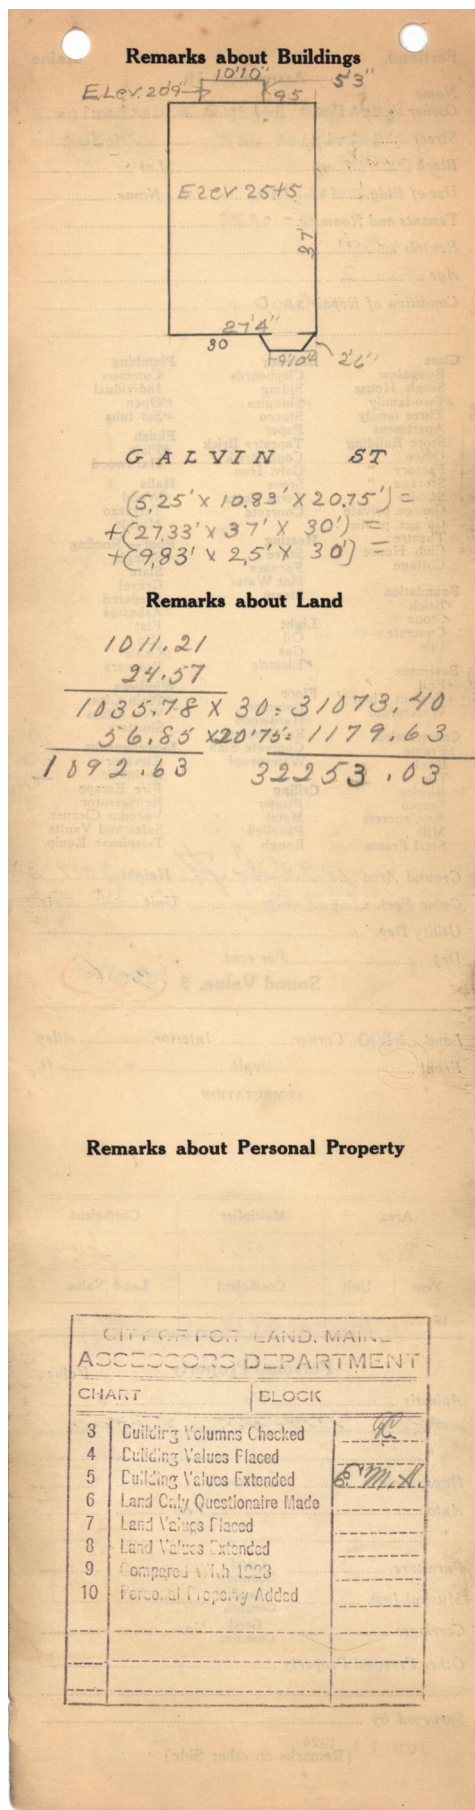 Remarks about Buildings
10'10"
5'3"
Elev. 20'9"
95
Elev 25+5
37'
27'4"
30
9'10"
2'6"
GALVIN ST
(5,25' x 10.83' x 20.75') =
+(27,33' x 37' x 30') =
+(9,83' x 2,5' x 30') =
Remarks about Land
1011.21
24.57
1035.78 x 30 = 31073.40
56.85 x20'75= 1179.63
1092.63 32253.03
Remarks about Personal Property
CITY OF PORTLAND, MAINE
ASSESSORS DEPARTMENT
CHART BLOCK
3 Building Volumns Checked
4 Building Values Placed
5 Building Values Extended E.M.H.
6 Land Only Questionaire Made
7 Land Values Placed
8 Land Values Extended
9 Compared With 1923
10 Personal Property Added